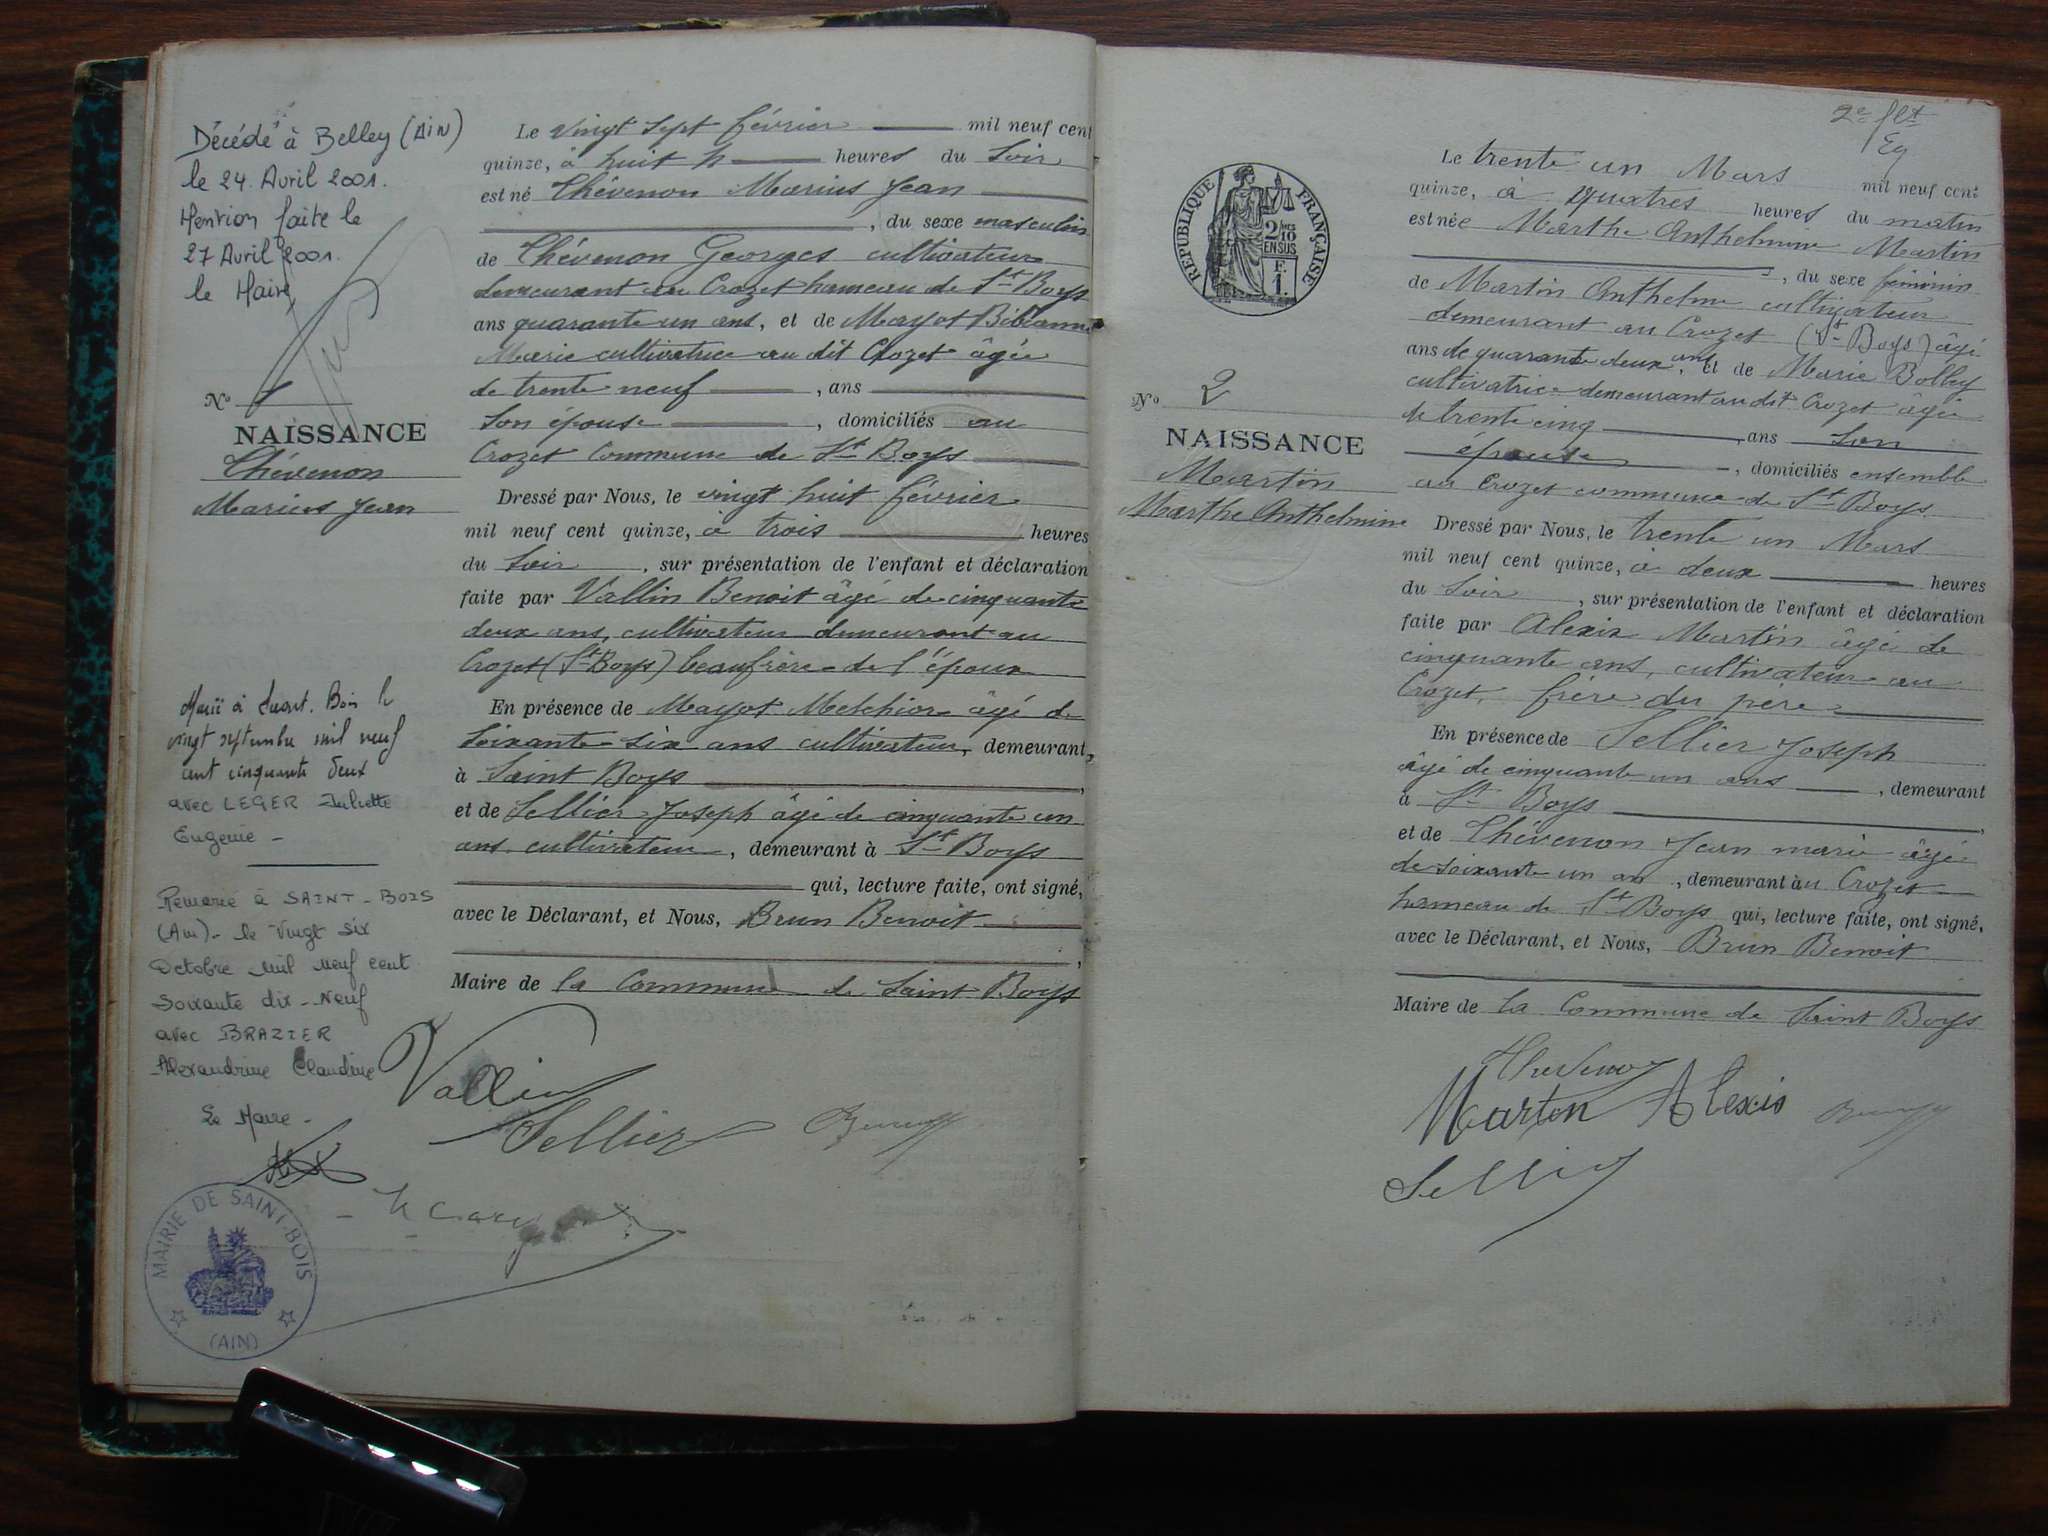 Décédé à Belley (AIN)
le 24 Avril 2001.
Mention faite le
27 Avril 2001.
le Maire,
No 1
NAISSANCE
Thévenon
Marius Jean
Marié à Saint. Bois le
vingt septembre mil neuf
cent cinquante deux
avec LEGER Juliette
Eugénie -
Remarié à SAINT - BOIS
(Ain) - le Vingt six
Octobre Mil Neuf cent
Soixante dix - Neuf
avec BRAZIER
Alexandrine Claudine
Le Maire -
MAIRIE DE SAINT-BOIS
(AIN)
Le vingt sept février mil neuf cent
quinze, à huit h heures du Soir
est né Thévenon Marius Jean
, du sexe masculin
de Thévenon Georges cultivateur
demeurant au Crozet hameau de St Boys
ans quarante un ans, et de Mayot Bibianne
Marie cultivatrice au dit Crozet âgée
de trente neuf , ans
Son épouse , domiciliés au
Crozet Commune de St Boys
Dressé par Nous, le vingt huit février
mil neuf cent quinze, à trois heures
du Soir , sur présentation de l'enfant et déclaration
faite par Vallin Benoit âgé de cinquante
deux ans, cultivateur demeurant au
Crozet (St Boys) beaufrère de l'époux
En présence de Mayot Melchior âgé de
Soixante-six ans cultivateur, demeurant
à Saint Boys ,
et de Sellier Joseph âgé de cinquante un
ans cultivateur , demeurant à St Boys
qui, lecture faite, ont signé,
avec le Déclarant, et Nous, Brun Benoit
,
Maire de la Commune de Saint Boys
Vallin
Sellier
2e flt
REPUBLIQUE FRANÇAISE
2/10
EN SUS
F.
1.
No 2
NAISSANCE
Martin
Marthe Anthelmine
Le trente un Mars mil neuf cent
quinze, à Quatres heures du matin
est née Marthe Anthelmine Martin
, du sexe féminin
de Martin Anthelme cultivateur
demeurant au Crozet (St Boys) âgé
ans de quarante deux ans, et de Marie Bolley
cultivatrice demeurant au dit Crozet âgée
de trente cinq , ans Son
épouse , domiciliés ensemble
au Crozet commune de St Boys
Dressé par Nous, le trente un Mars
mil neuf cent quinze, à deux heures
du Soir , sur présentation de l'enfant et déclaration
faite par Alexis Martin âgé de
cinquante ans, cultivateur au
Crozet, frère du père
En présence de Sellier Joseph
âgé de cinquante un ans , demeurant
à St Boys ,
et de Thévenon Jean marie âgé
de soixante un an , demeurant au Crozet
hameau de St Boys qui, lecture faite, ont signé,
avec le Déclarant, et Nous, Brun Benoit
Maire de la Commune de Saint Boys
Thevenon
Martin Alexis
Sellier